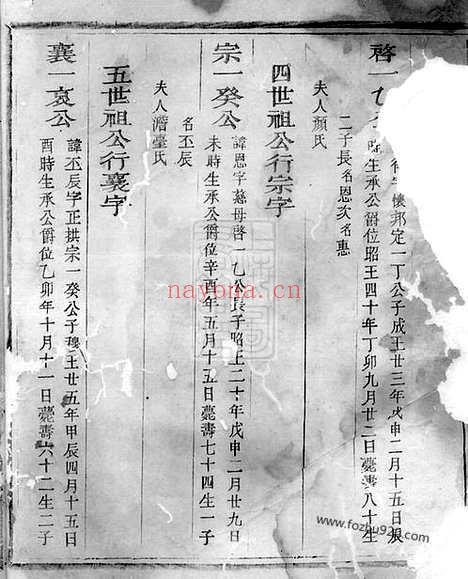 啓一乙
衍 懷邦定一丁公子成王廿三年戊申二月十五日辰
時生承公爵位昭王四十年丁卯九月廿二日薨壽八十生
二子長名恩次名惠
夫人顏氏
四世祖公行宗字
宗一癸公
諱恩字慈母啓一乙公長子昭王二十年戊申二月廿九日
未時生承公爵位辛酉年五月十五日薨壽七十四生一子
名丕辰
夫人澹臺氏
五世祖公行襄字
襄一哀公
諱丕辰字正拱宗一癸公子穆王廿五年甲辰四月十五日
酉時生承公爵位乙卯年十月十一日薨壽六十二生二子
nayona.cn
www.fozhu920.com